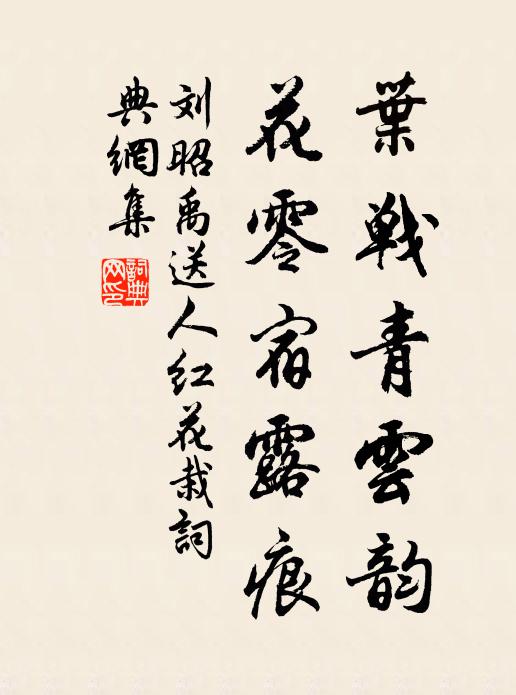 葉戰青雲韵
花零宿露痕
刘昭禹送人红花栽詞
典網集
詞典
网印